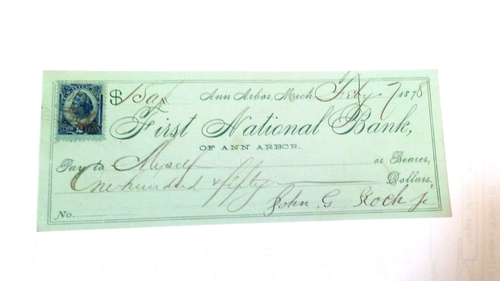 $150/ Ann Arbor, Mich. Feby 7 1878
First National Bank,
OF ANN ARBOR.
Pay to Myself or Bearer,
One hundred & fifty Dollars,
No. John G Koch Jr